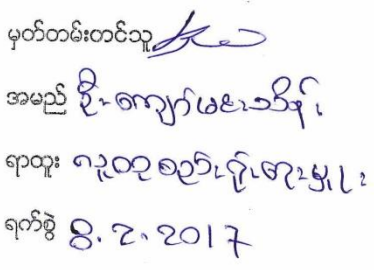 မှတ်တမ်းတင်သူ
အမည် ဦးကျော်မင်းသိန်း
ရာထူး ဒုတု စည်းရုံးရေးမှူး
ရက်စွဲ 8.2.2017